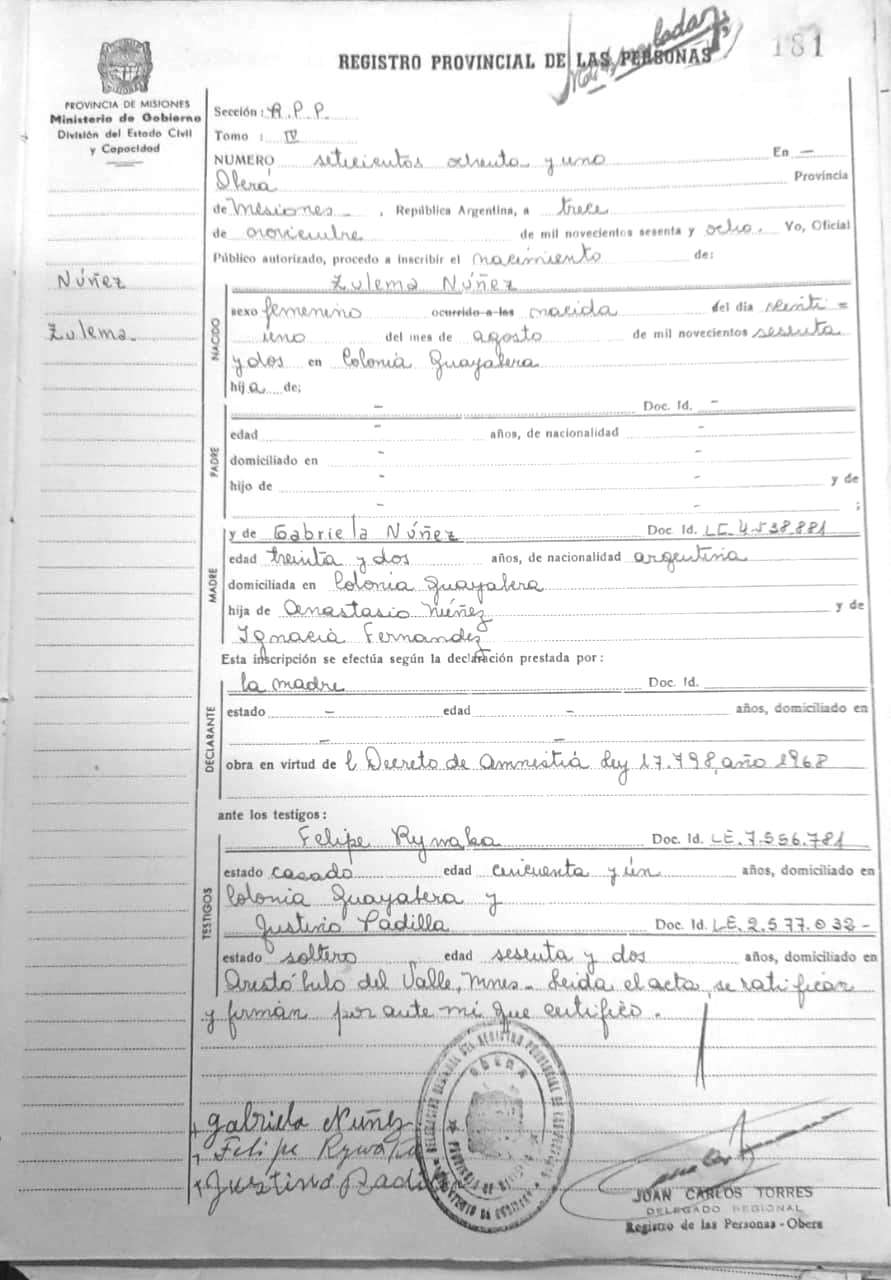 181
REGISTRO PROVINCIAL DE LAS PERSONAS
PROVINCIA DE MISIONES
Ministerio de Gobierno
División del Estado Civil
y Capacidad
Núñez
Zulema
Sección: R.P.P.
Tomo : IV
NUMERO setecientos ochenta y uno En —
Oberá Provincia
de Misiones , República Argentina, a trece
de noviembre de mil novecientos sesenta y ocho. Yo, Oficial
Público autorizado, procedo a inscribir el nacimiento de:
Zulema Núñez
NACIDO
sexo femenino ocurrido a las nacida del dia veinti=
uno del mes de agosto de mil novecientos sesenta
y dos en Colonia Guayabera
hija de;
PADRE
— Doc. Id. —
edad - años, de nacionalidad -
domiciliado en - -
hijo de - - y de
- - ;
MADRE
y de Gabriela Núñez Doc. Id. LC.4.538.881
edad treinta y dos años, de nacionalidad argentina
domiciliada en Colonia Guayabera
hija de Anastasio Núñez y de
Ignacia Fernandez
Esta inscripción se efectúa según la declaración prestada por:
DECLARANTE
la madre Doc. Id.
estado — edad — años, domiciliado en
— —
obra en virtud de l Decreto de Amnistiá Ley 17.798, año 1968
ante los testigos:
TESTIGOS
Felipe Rywaka Doc. Id. LE.7.556.781
estado casado edad cincuenta y ún años, domiciliado en
Colonia Guayabera y
Justino Padilla Doc. Id. LE.2.577.032-
estado soltero edad sesenta y dos años, domiciliado en
Aristóbulo del Valle, Mnes. Leida el acta, se ratifican
y firmán por ante mi que certifico.
Gabriela Nuñez
Felipe Rywaka
Justino Padi
OBERA
PROVINCIA DE MISIONES
JUAN CARLOS TORRES
DELEGADO REGIONAL
Registro de las Personas - Obera